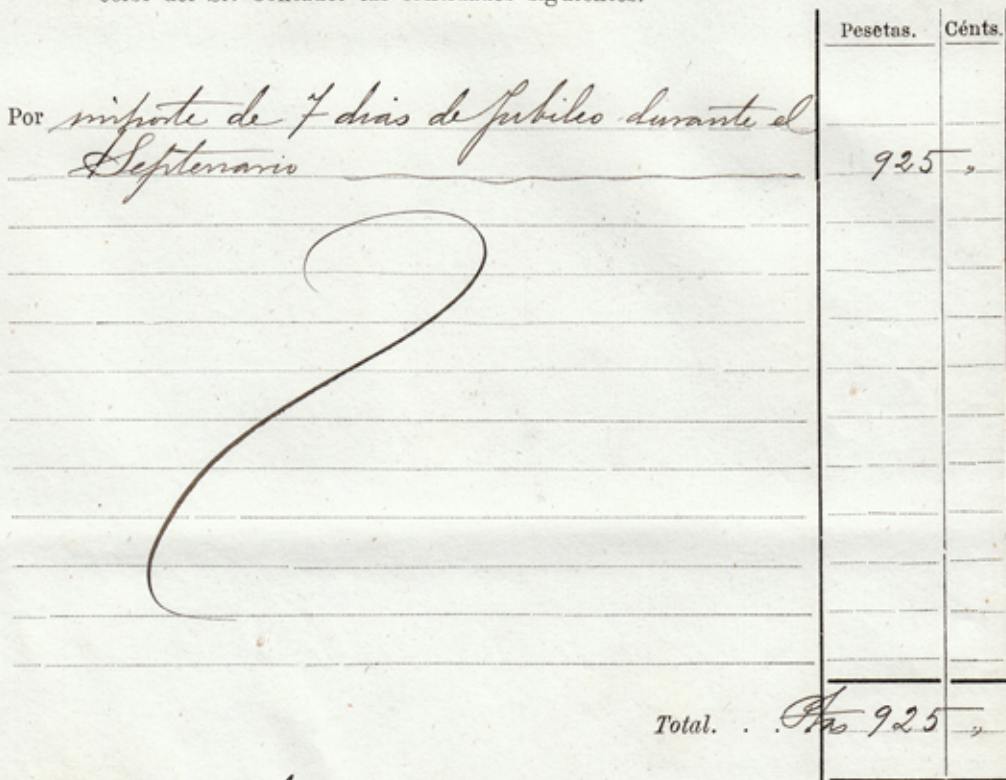 Pesetas. Cénts.
Por importe de 7 dias de Jubileo durante el
Septenario 925 „
Total. . . Ptas 925 „